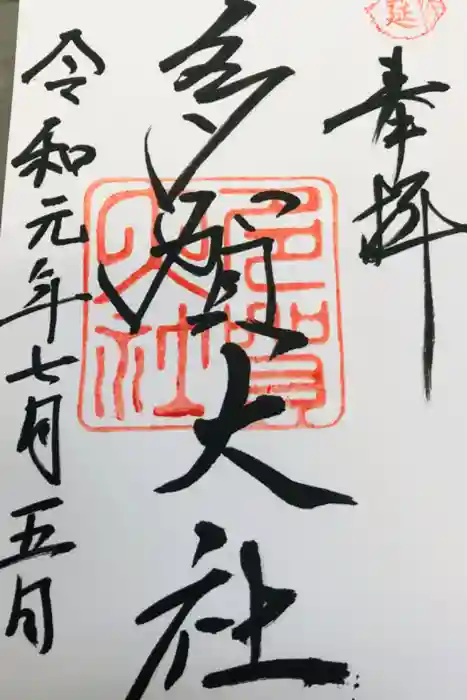 延
奉拝
多賀大社
多賀大社
令和元年七月五日